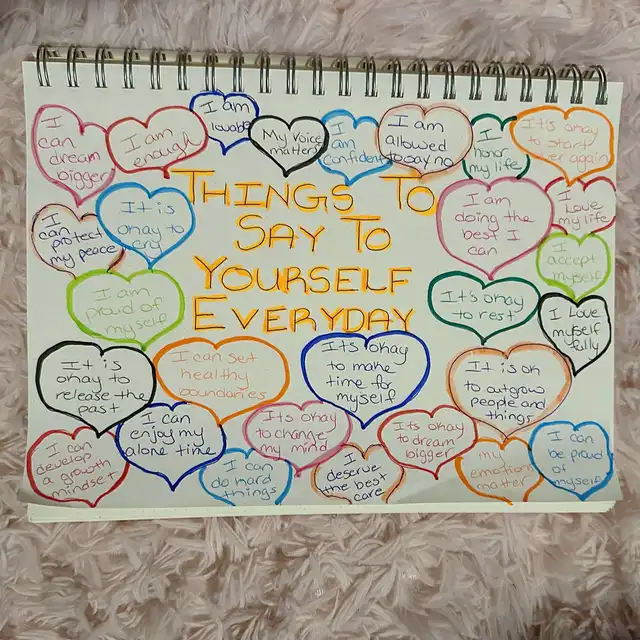 THINGS TO
SAY TO
YOURSELF
EVERYDAY
I
can dream
bigger
I am
enough
I am
lovable
My voice
matters
I am
confident
I am
allowed
to say no
I
honor
my life
It's okay
to start
over again
I
can
protect
my peace
It is
okay to
cry
I am
doing the
best I
can
I Love
my life
I am
proud of
myself
It's okay
to rest
I
accept
myself
It is
okay to
release the
past
I can set
healthy
boundaries
It's okay
to make
time for
myself
It is ok
to outgrow
people and
things
I Love
myself
I can
develop
a growth
mindset
I can
enjoy my
alone time
I can
do hard
things
Its okay
to change
my mind
I
deserve
the best
care
Its okay
to dream
bigger
my
emotions
matter
I can
be proud
of
myself